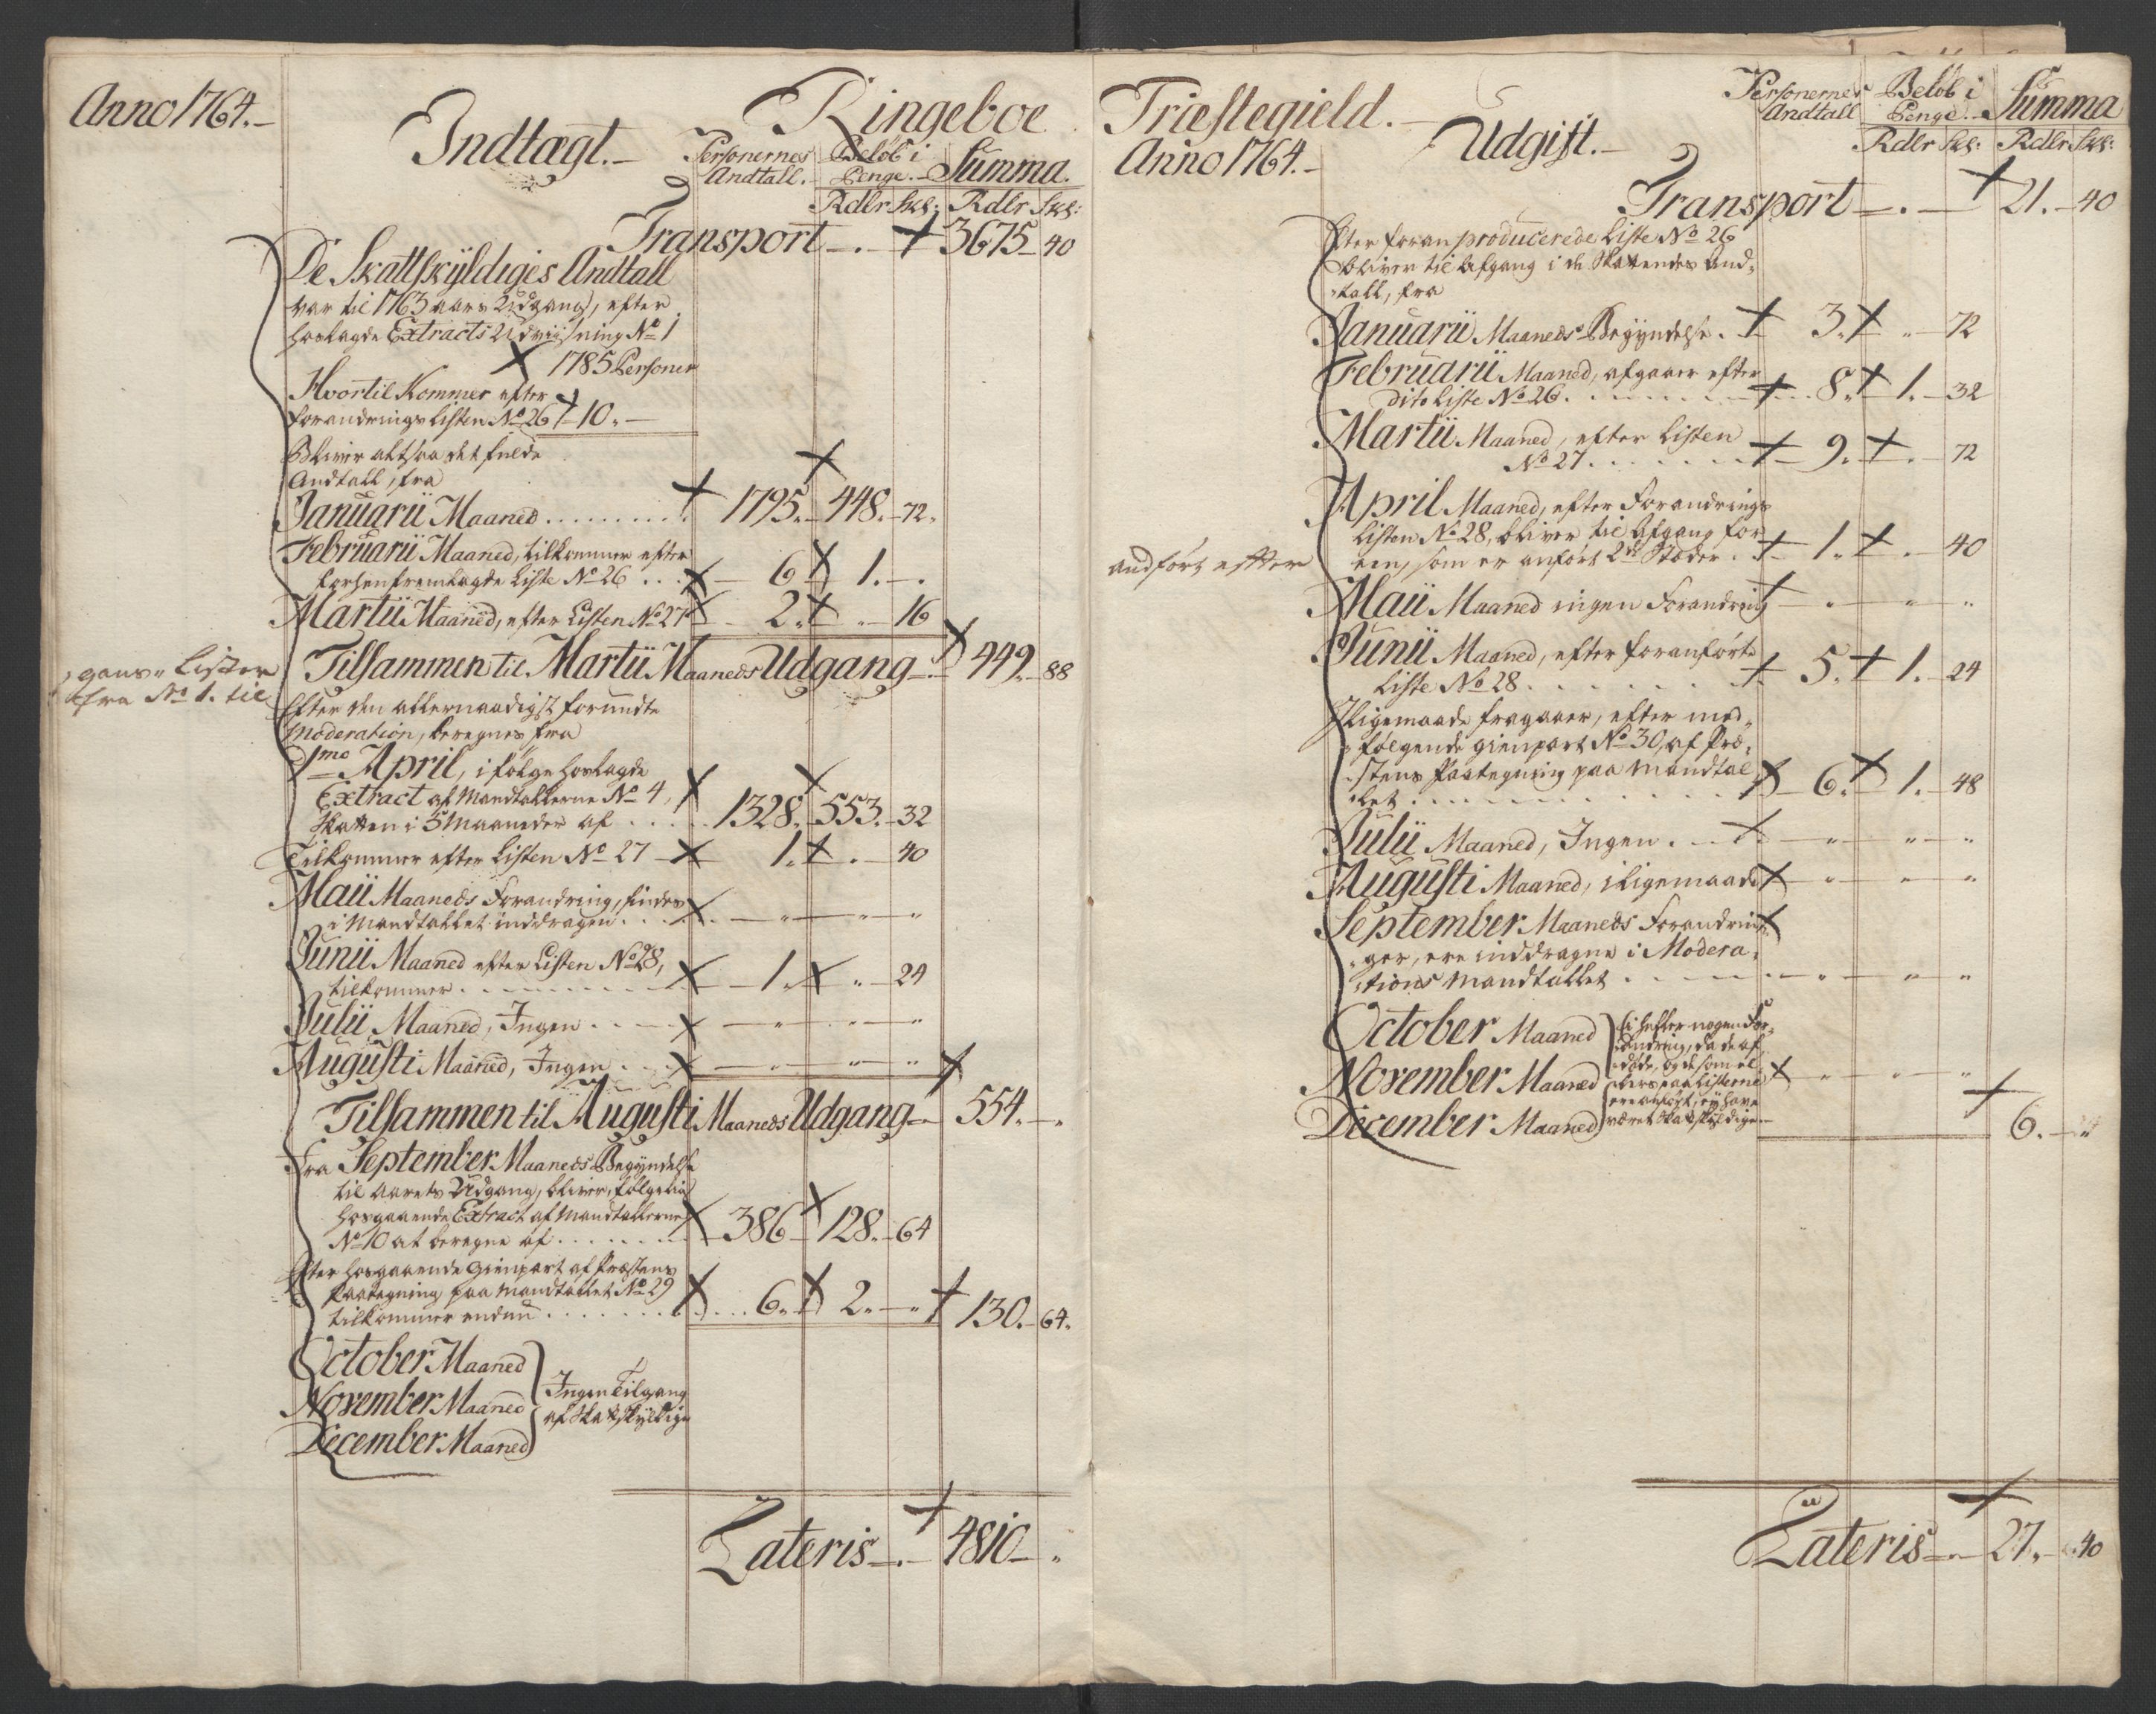 Anno 1764.
Indtægt.
Ringeboe
Personernes Andtall.
Beløb i Penge.
Summa.
Rdlr Skl: Rdlr Skl:
Transport 3675 40
De Skattskÿldiges Andtall
var til 1763 aars Udgang, efter
hoslagde Extracts Udviisning No 1
1785 Personer
Hvortil Kommer efter
forandrings Listen No 26 10.
Bliver altsaa det fulde
Andtall, fra
Januarii Maaned 1795. 448. 72.
Februarii Maaned, tilkommer efter
forhen fremlagde Liste No 26 6 1. .
Martii Maaned, efter Listen No 27 2. " 16
gans Lister
fra No 1. til
Tilsammen til Martii Maaneds Udgang 449. 88
Efter den allernaadigst forundte
Moderation, beregnes fra
1mo April, i følge hoslagde
Extract af Mandtallerne No 4,
Skatten i 5 Maaneder af 1328. 553. 32
Tilkommer efter Listen No 27 1. . 40
Maii Maaneds Forandring, findes
i Mandtallet inddragen " " "
Junii Maaned efter Listen No 28,
tilkommer 1. " 24
Julii Maaned, Ingen " " "
Augusti Maaned, Ingen " " "
Tilsammen til Augusti Maaneds Udgang 554. .
Fra September Maaneds Begÿndelse
til Aarets Udgang, bliver, følgelig
hosgaaende Extract af Mandtallerne
No 10 at beregne af 386 128. 64
Efter hosgaaende Gienpart af Præstens
Paategning paa Mandtallet No 29
tilkommer endnu 6. 2. " 130. 64.
October Maaned
November Maaned
December Maaned
Ingen Tilgang
af Skatskÿldige
Lateris 4810 "
Præstegield.
Anno 1764.
Udgift.
Personernes Andtall
Beløb i Penge.
Summa
Rdlr Skl: Rdlr Skl:
Transport 21. 40
Efter foran producerede Liste No 26
bliver til Afgang i de Skattendes And-
tall, fra
Januarii Maaneds Begÿndelse. 3. " 72
Februarii Maaned, afgaaer efter
dito Liste No 26. 8. 1. 32
Martii Maaned, efter Listen
No 27. 9. . 72
April Maaned, efter Forandrings
Listen No 28, bliver til Afgang for
een, som er anført 2de Stæder. 1. . 40
andført efter
Maii Maaned ingen Forandring " " "
Junii Maaned, efter foranførte
Liste No 28 5. 1. 24
Iligemaade fragaaer, efter med-
følgende Gienpart No 30, af Præ-
stens Paategning paa Mandtal-
let 6. 1. 48
Julii Maaned, Ingen. " " "
Augusti Maaned, iligemaade " " "
September Maaneds Forandrin-
ger, ere inddragne i Modera-
tions Mandtallet " " "
October Maaned
November Maaned
December Maaned
ei heller nogen For-
andring, da de af-
døde, og de som el-
lers paa Listerne
ere anført, eÿ have
været Skatskÿldige
" " "
6. "
Lateris 27. 40